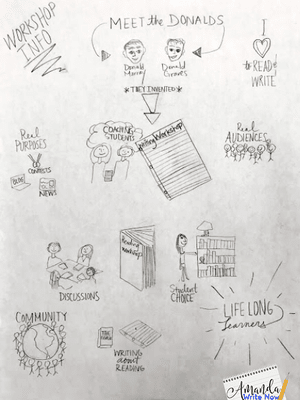 WORKSHOP
INFO
MEET the DONALDS
Donald
Murray
Donald
Graves
*THEY INVENTED*
I
to READ &
WRITE
Real
PURPOSES
CONTESTS
BLOG
NEWS
COACHING
STUDENTS
Writing Workshop
Real
AUDIENCES
DISCUSSIONS
Reading
Workshop
Student
CHOICE
LIFE LONG
Learners
COMMUNITY
WRITING
about
READING
Amanda
Write Now